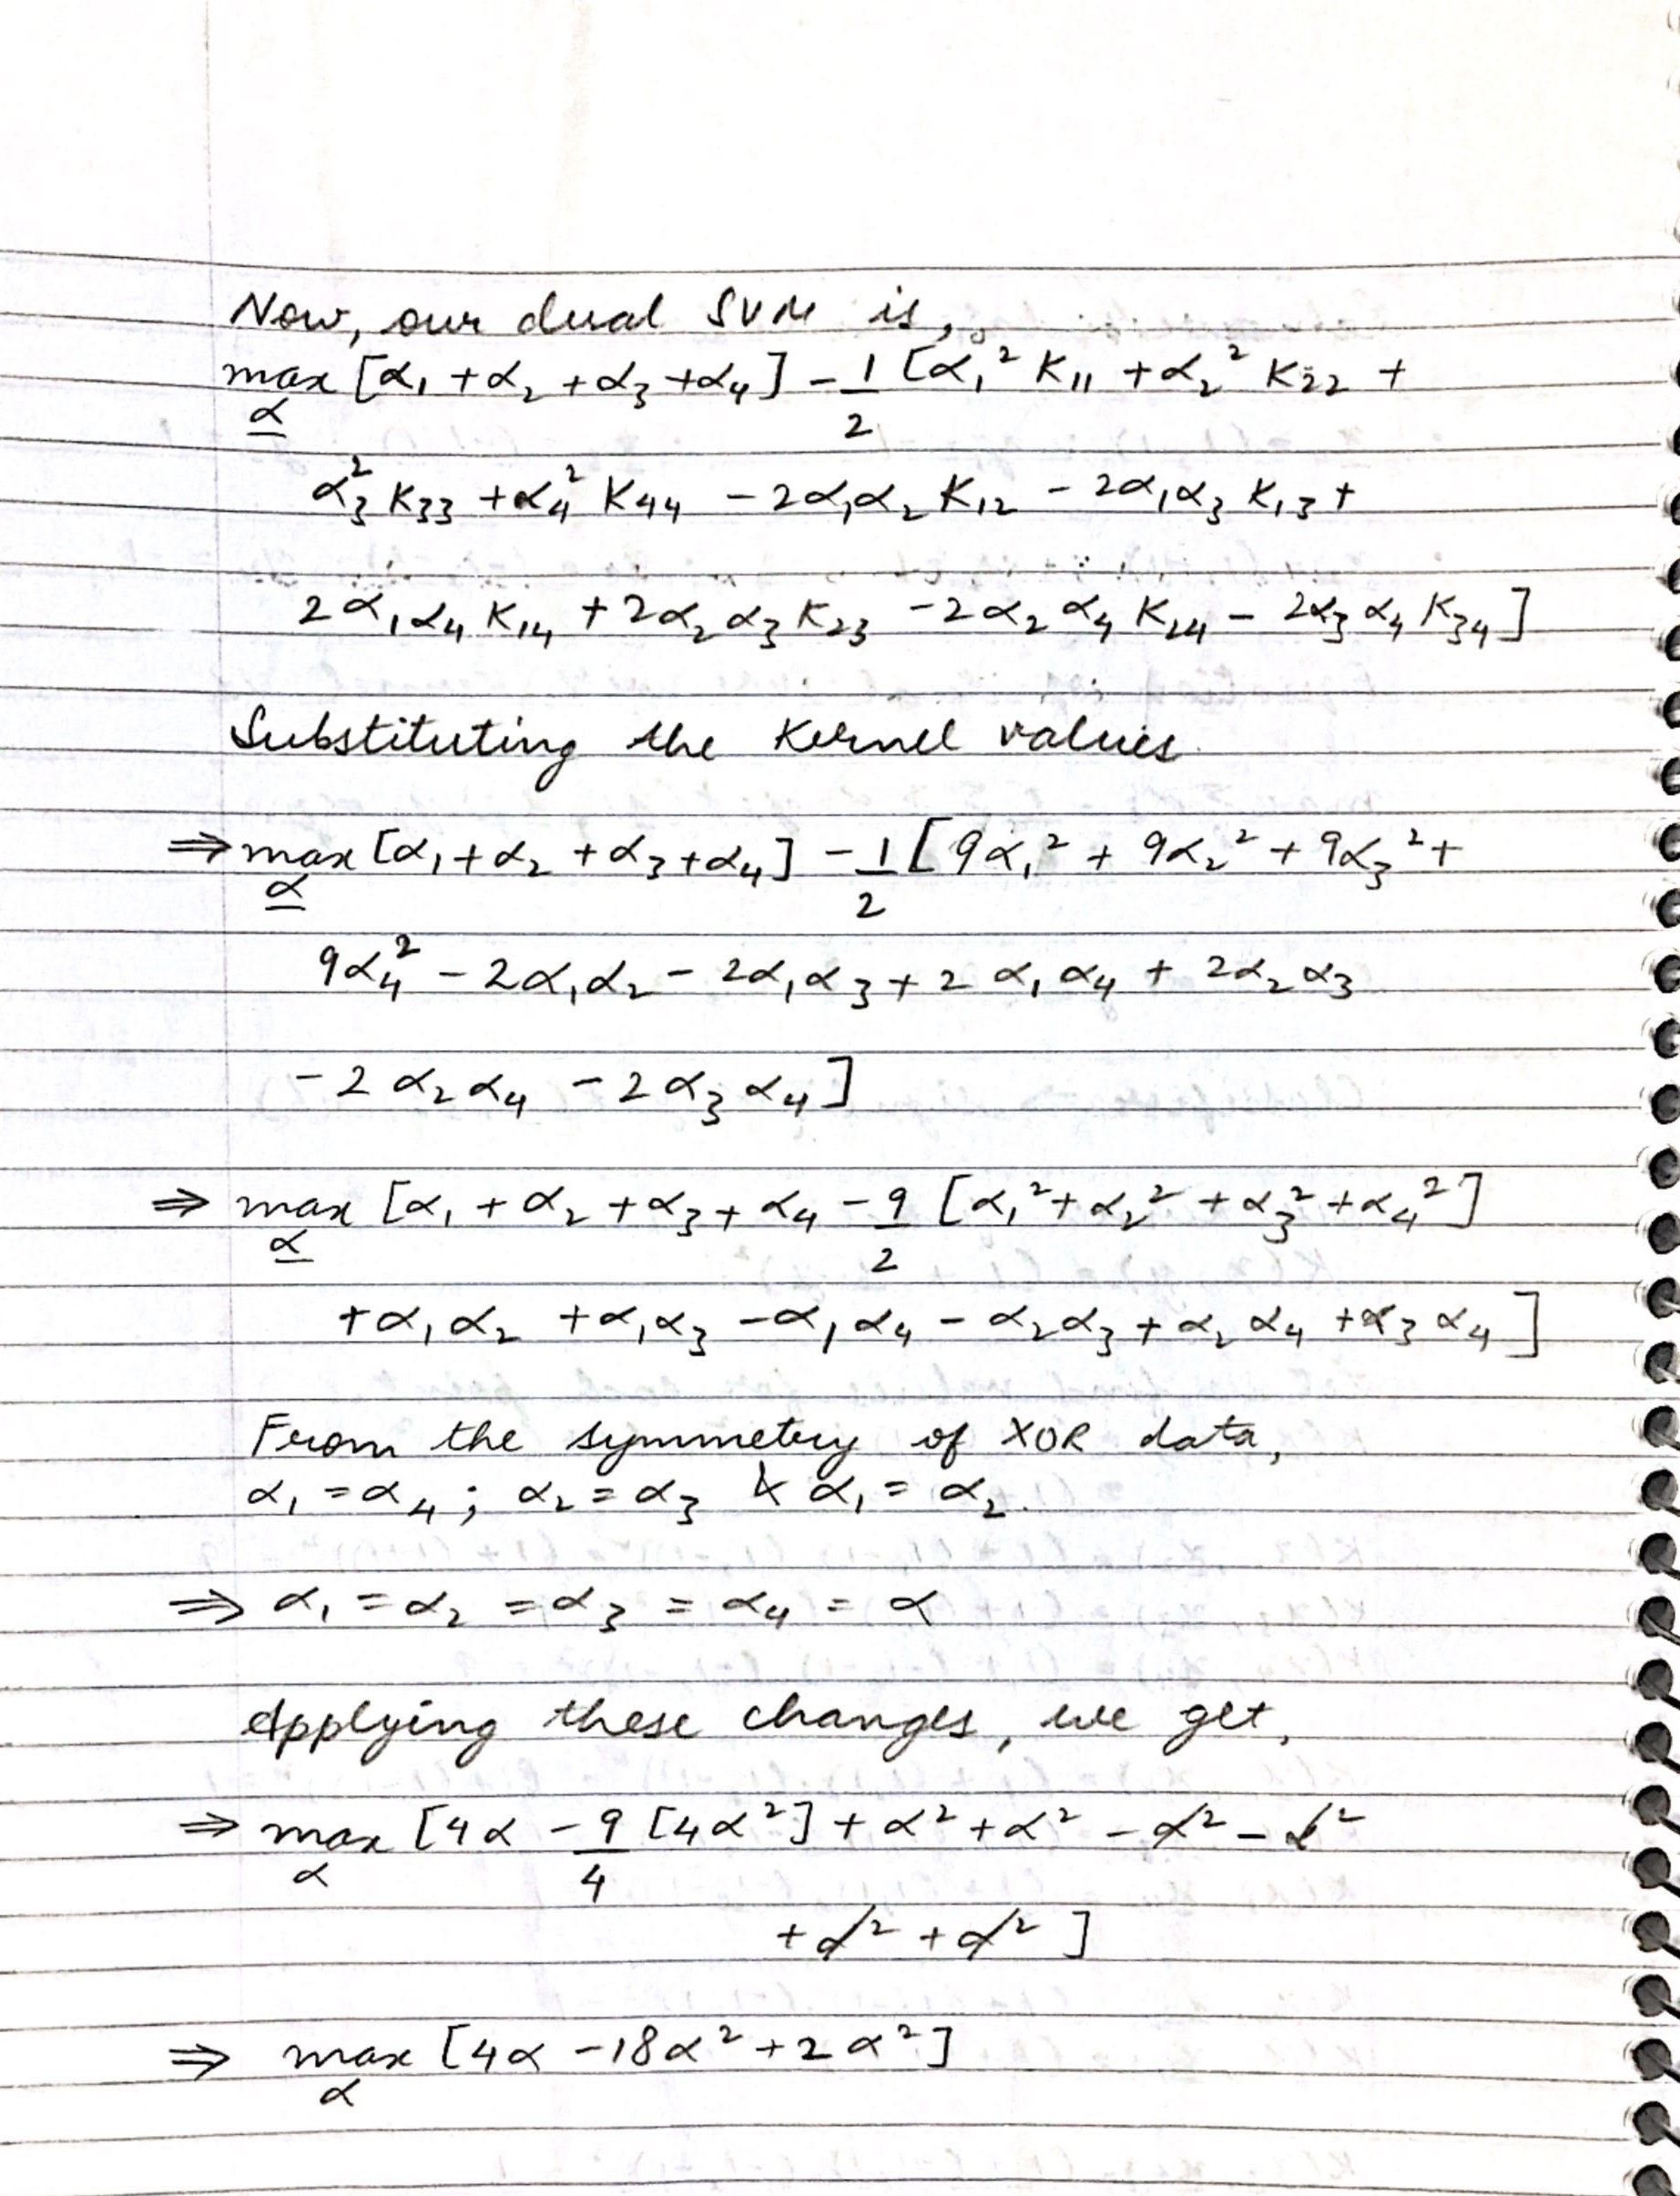 Now, our dual SVM is,
max [α₁ + α₂ + α₃ + α₄] - 1/2 [α₁² K₁₁ + α₂² K₂₂ +
α
α₃² K₃₃ + α₄² K₄₄ - 2α₁α₂ K₁₂ - 2α₁α₃ K₁₃ +
2α₁α₄ K₁₄ + 2α₂α₃ K₂₃ - 2α₂α₄ K₂₄ - 2α₃α₄ K₃₄]
Substituting the Kernel values
⇒ max [α₁ + α₂ + α₃ + α₄] - 1/2 [9α₁² + 9α₂² + 9α₃² +
α
9α₄² - 2α₁α₂ - 2α₁α₃ + 2α₁α₄ + 2α₂α₃
- 2α₂α₄ - 2α₃α₄]
⇒ max [α₁ + α₂ + α₃ + α₄ - 9/2 [α₁² + α₂² + α₃² + α₄²]
α
+ α₁α₂ + α₁α₃ - α₁α₄ - α₂α₃ + α₂α₄ + α₃α₄]
From the symmetery of XOR data,
α₁ = α₄; α₂ = α₃ & α₁ = α₂.
⇒ α₁ = α₂ = α₃ = α₄ = α
Applying these changes, we get,
⇒ max [4α - 9/4 [4α²] + α² + α² - α² - α²
α
+ α² + α²]
⇒ max [4α - 18α² + 2α²]
α